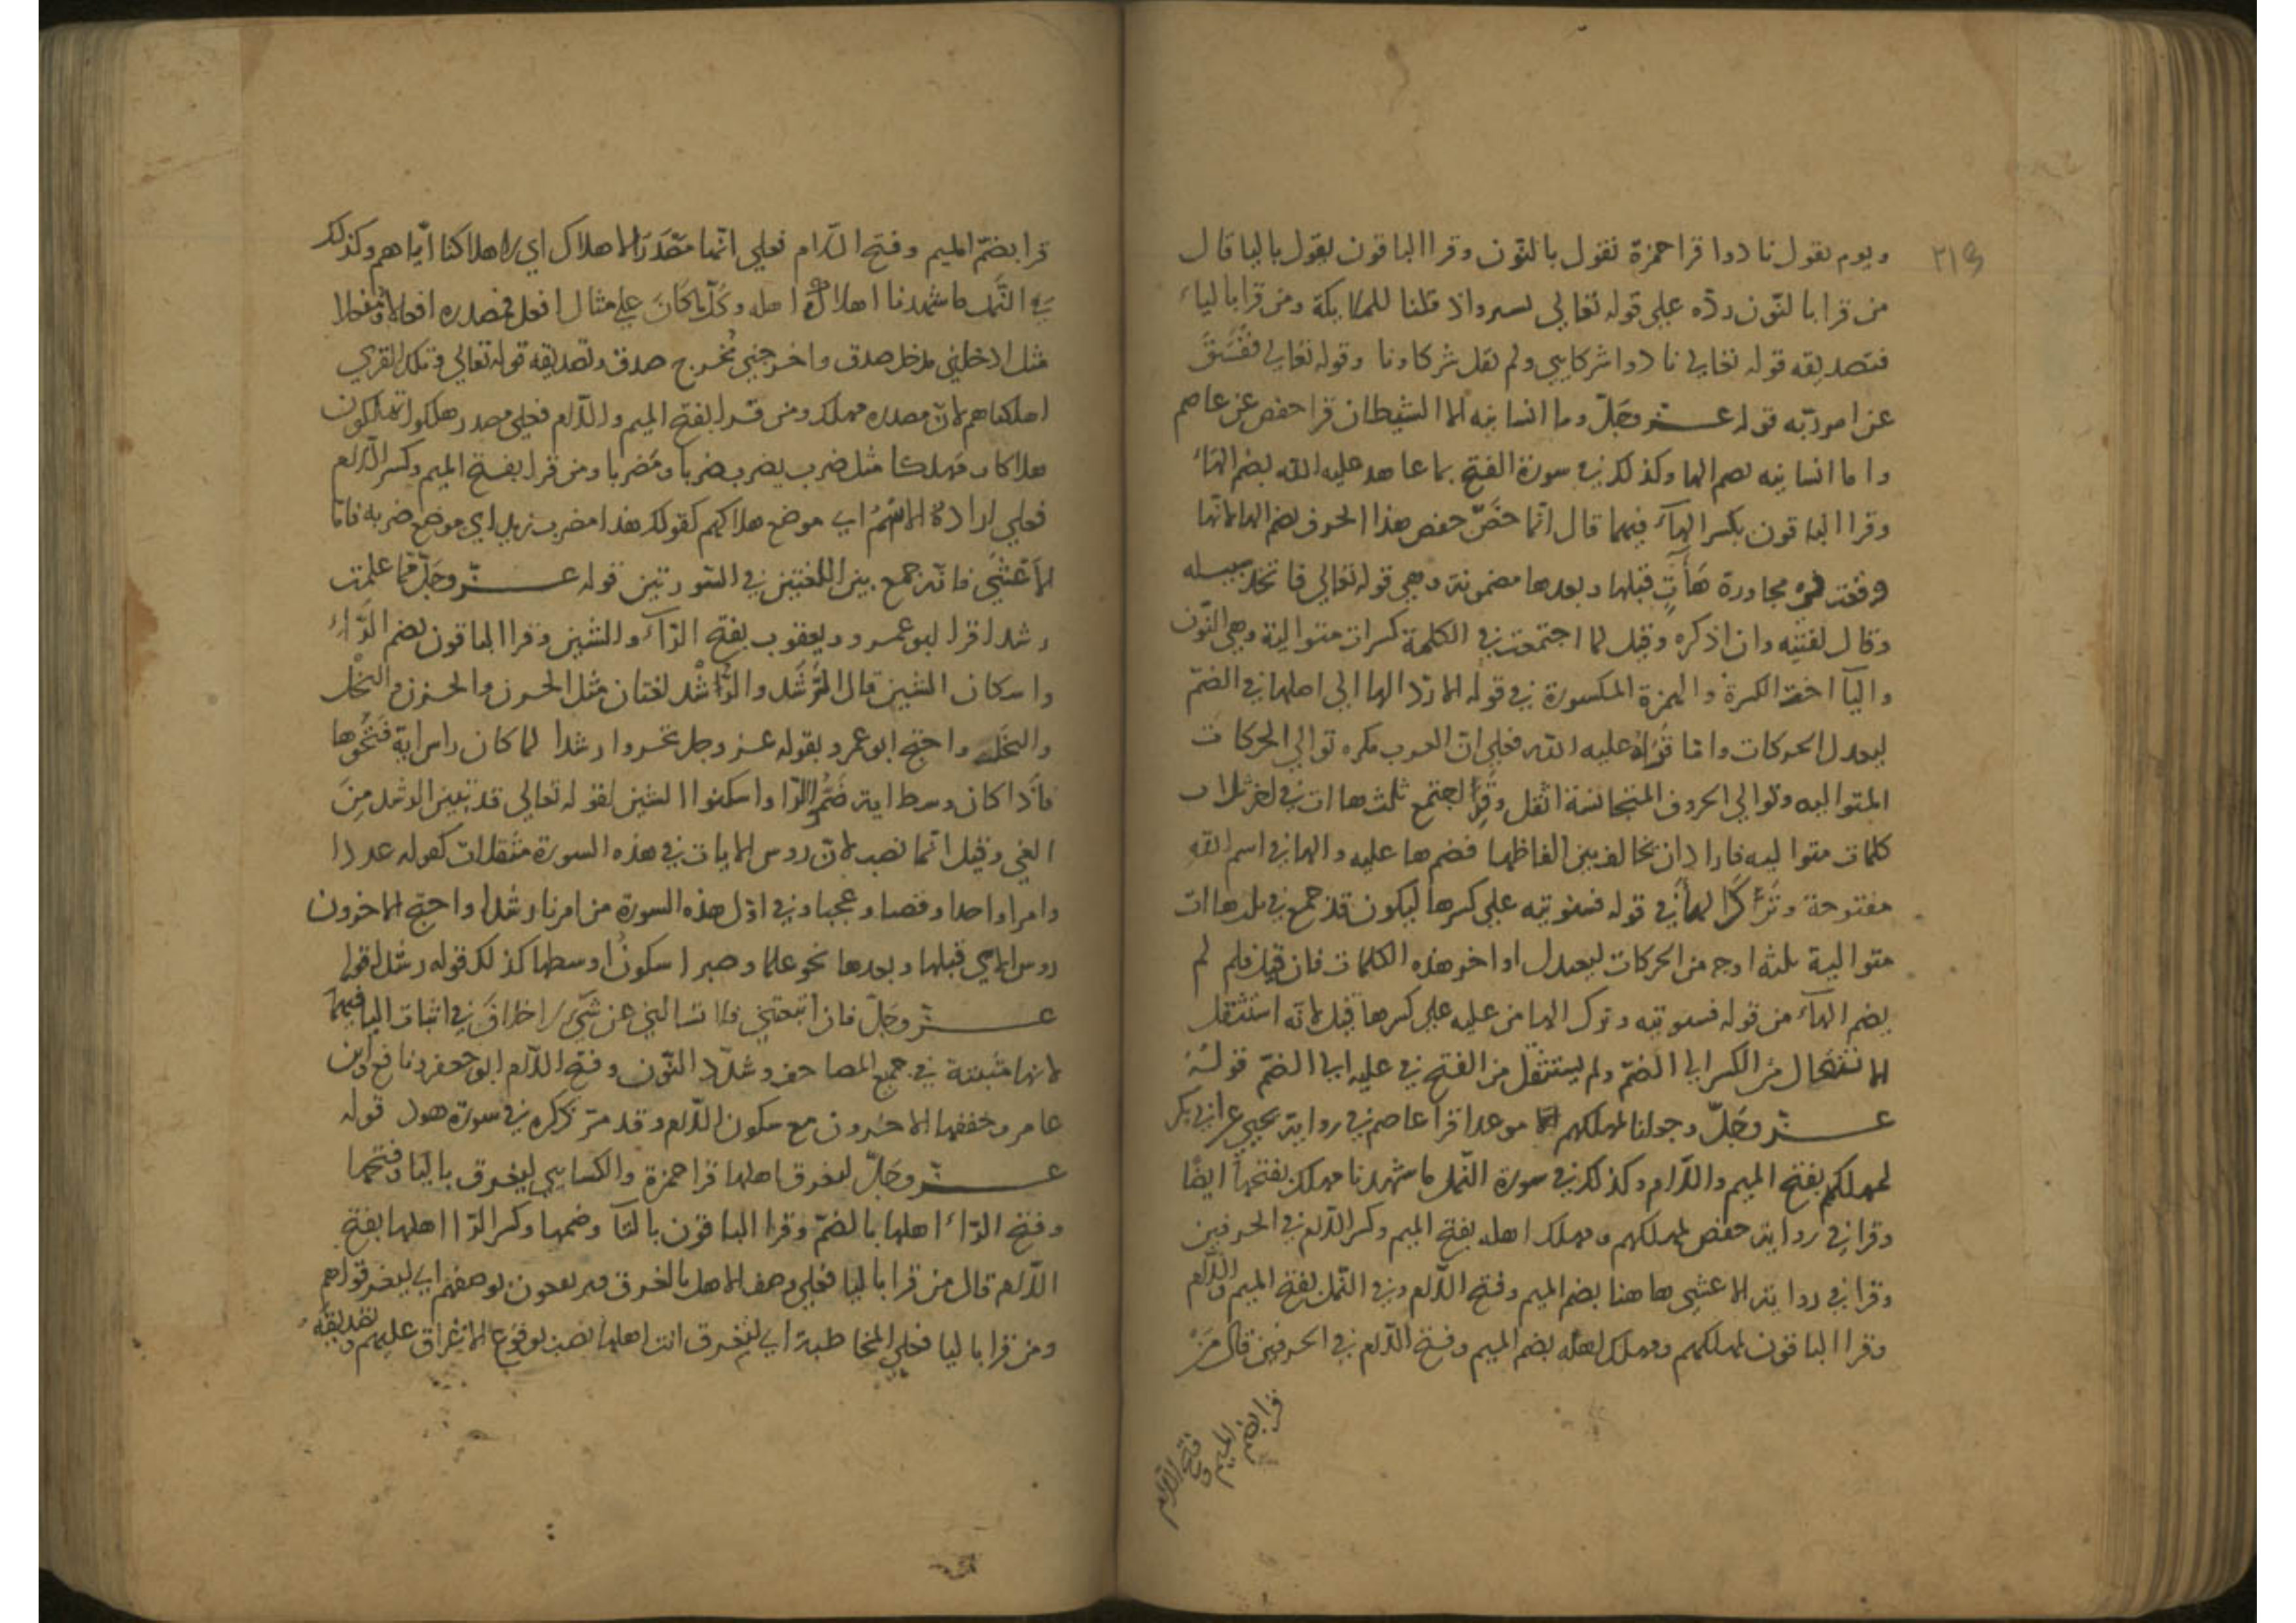 ٢١٩
ويوم يقول نادوا قرا حمزة نقول بالنّون وقرا الباقون يقول باليا قال
من قرا بالنّون ردّه على قوله تعالى واذ قلنا للملايكة ومن قرا بالياء
فتصديقه قوله تعالى نادوا شركايى ولم يقل شركاونا وقوله تعالى ففسق
عن امر ربّه قوله عــز وجلّ وما انسانيه الا الشيطان قرا حفص عن عاصم
وما انسانيه بضم الها وكذلك في سورة الفتح بما عاهد عليه الله بضم الهاء
وقرا الباقون بكسر الهاء فيهما قال انما خصّ حفص هذا الحرف بضم الها لانّها
وقعت في مجاورة هاآتٍ قبلها وبعدها مضمونة وهي قوله تعالى فاتخذ سبيله
وقال لفتيه وان اذكره وقيل لما اجتمعت في الكلمة كسرات متوالية وهي النّون
واليآ اخت الكسرة والهمزة المكسورة في قوله الا ردّ الها الى اصلها في الضمّ
ليعدل الحركات وامّا قراة عليه الله فعلى انّ العرب تكره توالي الحركات
المتواليه وتوالي الحروف المتجانسة اثقل اجتمع ثلث هاات في اخر ثلاث
كلمات متواليه فاراد ان يخالف بين الفاظها فضم ها عليه والها في اسم الله
مفتوحة وترك الها في قوله فسنوتيه على كسرها ليكون قد جمع في ثلث هاات
متوالية ثلثة اوجه من الحركات ليعدل اواخر هذه الكلمات فان قيل فلم لم
يضم الهآء من قوله فسنوتيه وترك الها من عليه على كسرها قيل لانّه استثقل
الانتقال من الكسر الى الضمّ ولم يستثقل من الفتح في عليه الى الضمّ قوله
عــز وجلّ وجعلنا لمهلكهم موعدا قرا عاصم في رواية يحيى عن ابي بكر
لمهلكهم بفتح الميم واللام وكذلك في سورة النّمل ما شهدنا مهلك بفتحها ايضًا
وقرا في رواية حفص لمهلكهم ومهلك اهله بفتح الميم وكسر اللام في الحرفين
وقرا في رواية الاعشى ها هنا بضم الميم وفتح اللام وفي النّمل بفتح الميم واللام
وقرا الباقون لمهلكهم ومهلك اهله بضم الميم وفتح اللام في الحرفين قال من
قرا بضم
الميم و
فتح اللام
قرا بضمّ الميم وفتح اللام فعلى انّها مصدر الاهلاك اي لاهلاكنا ايّاهم وكذلك
في النّمل ما شهدنا اهلاك اهله وكلّ ما كان على مثال افعل فمصدره افعالا ومفعلا
مثل ادخلني مدخل صدق واخرجني مُخرج صدق وتصديقه قوله تعالى وتلك القرى
اهلكناهم لانّ مصدره مهلك ومن قــرا بفتح الميم واللام فعلى مصدر هلكوا يهلكون
هلاكا ومَهلكا مثل ضرب يضرب ضربا ومَضربا ومن قرا بفــتح الميم وكسر اللام
فعلى ارادة الاسم اي موضع هلاكهم كقولك هذا مضرب زيد اي موضع ضربه فامّا
الاعشى فانّه جمع بين اللغتين في السّورتين قوله عــز وجلّ ممّا علمت
رشدا قرا ابو عمــرو ويعقوب بفتح الرّآء والشين وقرا الباقون بضم الرّاء
واسكان الشين قال الرَّشَد والرُّشْد لغتان مثل الحــزن والحــزن والبُخْل
والبَخَل واحتج ابو عمرو بقوله عــز وجل تحــروا رشدا لما كان راس اية فتحوها
فاذا كان وسط اية ضمّوا الرّا واسكنوا الشين لقوله تعالى قد تبيّن الرشد مِنَ
الغي وقيل انّما نصب لانّ روس الايات في هذه السورة مثقلات كقوله عددا
وامرا واحدا وقصصا وعجبا وفي اوّل هذه السورة من امرنا رشدا واحتج الاخرون
روس الاي قبلها وبعدها نحو علما وصبرا سكون اوسطها كذلك قوله رشدا قوله
عــز وجلّ فان اتبعتني فلا تسالني عن شيء لا خلاف في اثبات اليا فيهما
لانها مثبتة في جميع المصاحف وشدّد النّون وفتح اللام ابو جعفر ونافع وابن
عامر وخففها الاخــرون مع سكون اللام وقد مرّ ذكره في سورة هود قوله
عــز وجلّ ليغرق اهلها قرا حمزة والكسايي ليغــرق باليا وفتحها
وفتح الرّاء اهلها بالضمّ وقرا الباقون بالتآ وضمها وكسر الرّا اهلها بفتح
اللام قال من قرا باليا فعلى وصف الاهل بالغرق اي ليغــرقوا هم
ومن قرا باليا فعلى المخاطبة اي لتغــرق انت اهلها نصب لوقوع الاغراق عليهم وتصديقه